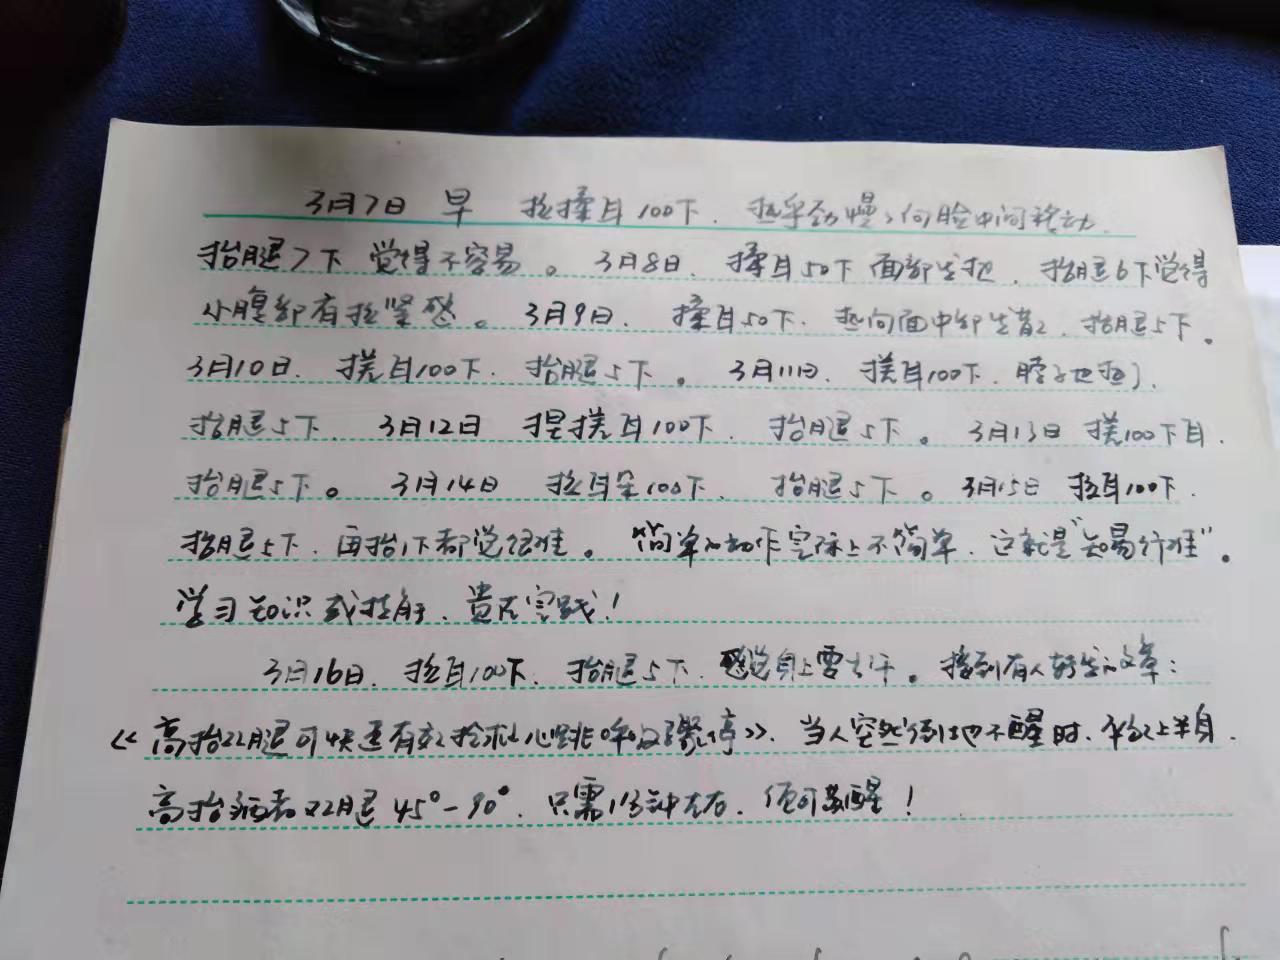 3月7日 早 拉揉耳100下. 热乎劲慢々向脸中间移动.
抬腿7下 觉得不容易。3月8日. 揉耳50下 面部发热, 抬腿6下觉得
小腹部有拉紧感。3月9日. 揉耳50下. 热向面中部发散, 抬腿5下。
3月10日. 搓耳100下. 抬腿5下。3月11日. 搓耳100下. 脖子也热了.
抬腿5下. 3月12日 提搓耳100下. 抬腿5下。3月13日 搓100下耳.
抬腿5下。3月14日 拉耳朵100下. 抬腿5下。3月15日 拉耳100下.
抬腿5下. 再抬1下都觉很难。简单的动作实际上不简单. 这就是"知易行难"。
学习知识或技能, 贵在实践!
3月16日. 拉耳100下. 抬腿5下. 感觉身上要出汗。接到有人转发的文章:
《高抬双腿可快速有效抢救心跳呼吸骤停》. 当人突然倒地不醒时. 平放上半身.
高抬病者双腿45°-90°. 只需1分钟左右. 便可苏醒!